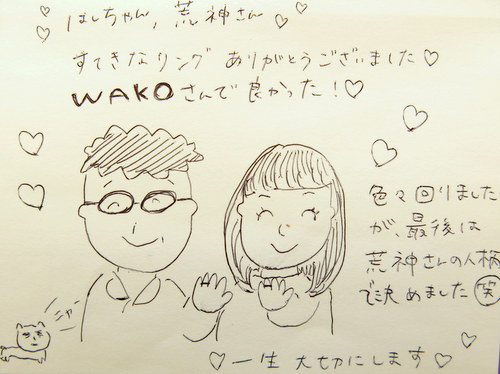 はしちゃん,荒神さん♡
すてきなリング ありがとうございました♡
WAKOさんで良かった!♡
色々回りました
が、最後は
荒神さんの人柄
で決めました(笑)
シャー
♡一生 大切にします♡